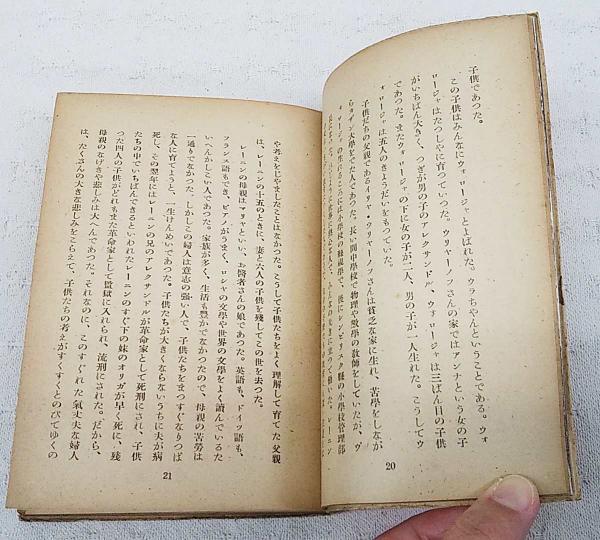 子供であつた。
この子供はみんなにウォロージャとよばれた。ウラちやんということである。ウォ
ロージャはたつしやに育つていつた。ウリャーノフさんの家ではアンナという女の子
がいちばん大きく、つぎが男の子のアレクサンドル、ウォロージャは三ばん目の子供
であつた。またウォロージャの下に女の子が二人、男の子が一人生れた。こうしてウ
ォロージャは五人のきようだいをもつていた。
子供たちの父親であるイリヤ・ウリャーノフさんは貧乏な家に生れ、苦學をしなが
らカザン大學をでた人であつた。長い間中學校で物理や數學の教師をしていたが、ヴ
ォロージャの生れるころには小學校の視學で、後にシンビリスク縣の小學校管理部
20
や考えをじやましたことはなかつた。こうして子供たちをよく理解して育てた父親
は、レーニンの十五のときに、妻と六人の子供を残してこの世を去つた。
レーニンの母親はマリヤといい、お醫者さんの娘であつた。英語も、ドイツ語も、
フランス語もでき、ピアノがうまく、ロシヤの文學や世界の文學をよく讀んでいるた
いへんかしこい人であつた。家族が多く、生活も豊かでなかつたので、母親の苦勞は
一通りでなかつた。しかしこの婦人は意志の強い人で、子供たちをまつすぐなりつぱ
な人に育てようと、一生けんめいであつた。子供たちが大きくならないうちに夫が病
死し、その翌年にはレーニンの兄のアレクサンドルが革命家として死刑にされ、子供
たちの中でいちばんできるといわれたレーニンのすぐ下の妹のオリガが早く死に、残
つた四人の子供がどれもまた革命家として監獄に入れられ、流刑にされた。だから、
母親のなげきや悲しみは大へんであつた。それなのに、このすぐれた氣丈夫な婦人
は、たくさんの大きな悲しみをこらえて、子供たちの考えがすくすくとのびてゆくの
21